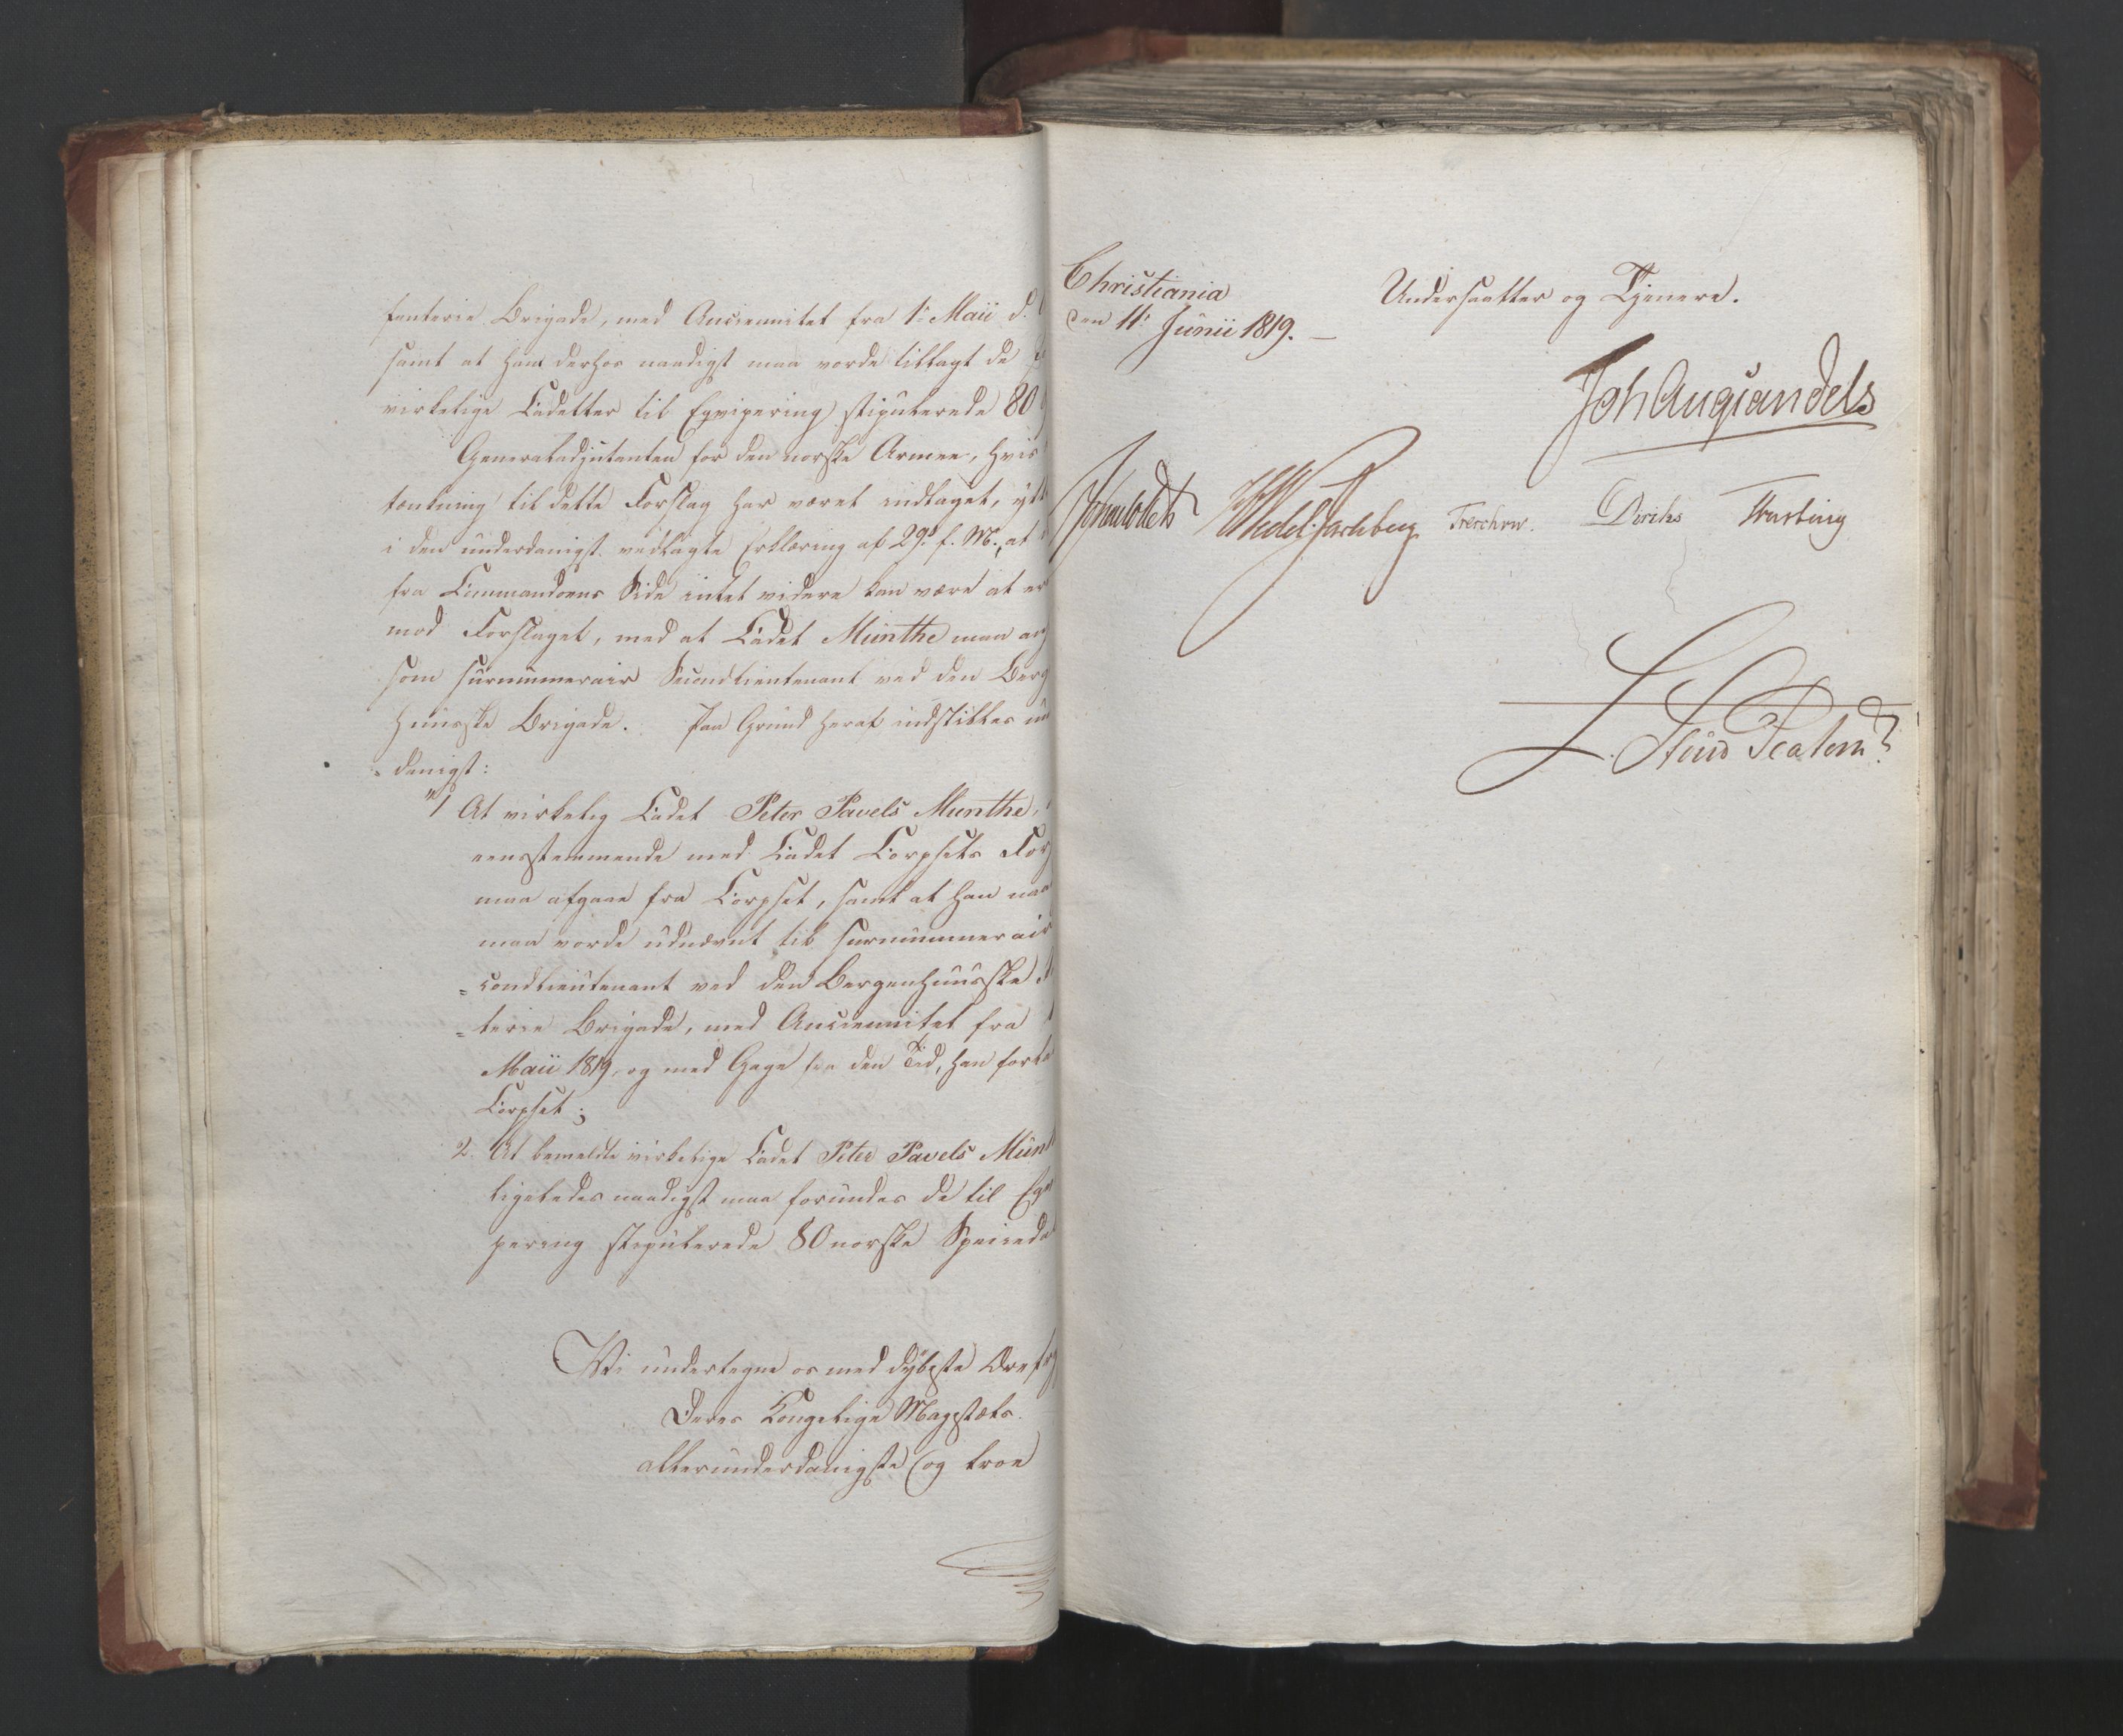 fanterie Brigade, med Anciennitet fra 1ste Maii d.
samt at ham derhos naadigst maa vorde tillagt de
virkelige Cadetter til Eqvipering stipulerede 80
Generaladjutanten for den norske Armee, hvis
tænkning til dette Forslag har været indtaget, ytt
i den underdanigst vedlagte Erklæring af 29de f. M., at
fra Commandoens Side intet videre kan være at er
mod Forslaget, med at Cadet Munthe maa an
som surnummerair Secondlieutenant ved den Berg
huusske Brigade. Paa Grund heraf indstilles un
danigst:
"1 At virkelig Cadet Peter Pavels Munthe,
eensstemmende med Cadet Corpsets For
maa afgaae fra Corpset, samt at han naa
maa vorde udnævnt til surnummerair
condlieutenant ved den Bergenhuusske
terie Brigade, med Anciennitet fra 1
Maii 1819, og med Gage fra den Tid, han forla
Corpset;
2 At bemeldte virkelige Cadet Peter Pavels Munt
ligeledes naadigst maa forundes de til Eqvi
pering stipulerede 80 norske Specieda
Vi undertegne os med dybeste Ærefry
Deres Kongelige Majestæts
allerunderdanigste og troe
Christiania
den 11te Junii 1819.
Undersaatter og Tjenere.
Joh Aug Sandels
Sommerfeldt Wedel Jarlsberg Treschow. Diriks Krebs